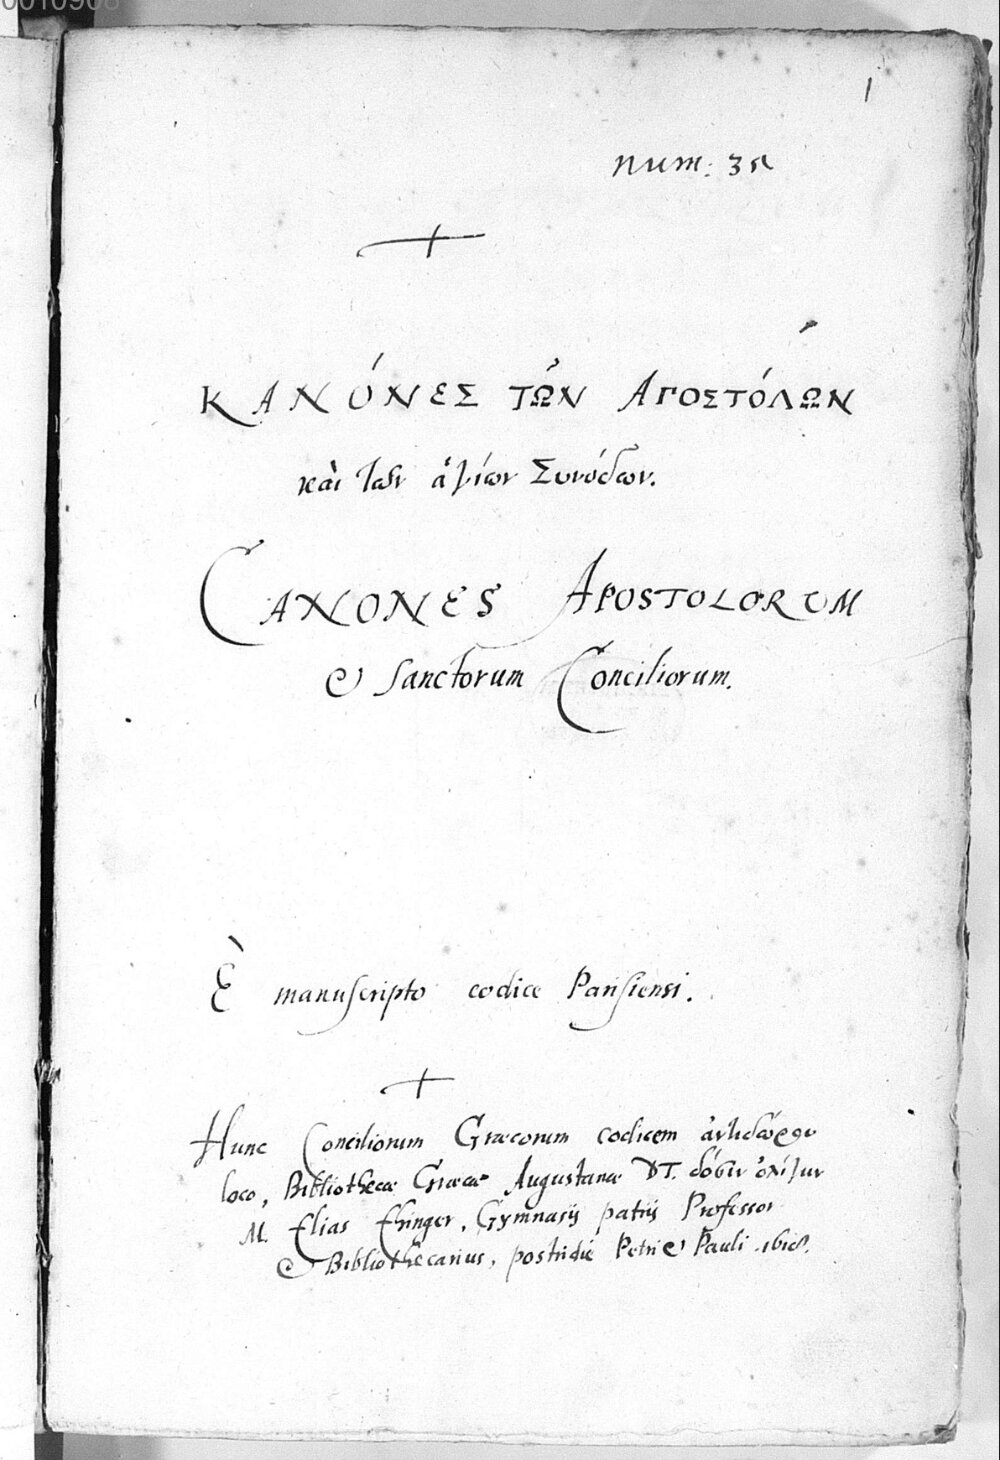 0010908
1
num: 35
ΚΑΝΌΝΕΣ ΤΩ͂Ν ΑΠΟΣΤΌΛΩΝ
καὶ τῶν ἁγίων Συνόδων.
CANONES APOSTOLORUM
& sanctorum Conciliorum.
È manuscripto codice Parisiensi.
Hunc Conciliorum Græcorum codicem ἀντιδώρου
loco, Bibliothecæ Græcæ Augustanæ DT. δόσιν ὀλίγην
M. Elias Ehinger, Gymnasii patrii Professor
& Bibliothecarius, postridie Petri & Pauli 1618.